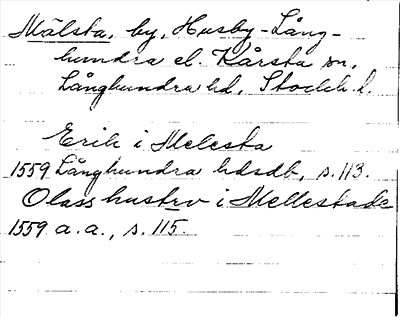 Mälsta, by, Husby-Lång-
hundra el. Kårsta sn,
Långhundra hd, Stockh. l.
Erik i Melesta
1559 Långhundra hdsdb, s. 113.
Olass hustrv i Mellestade
1559 a. a., s. 115.